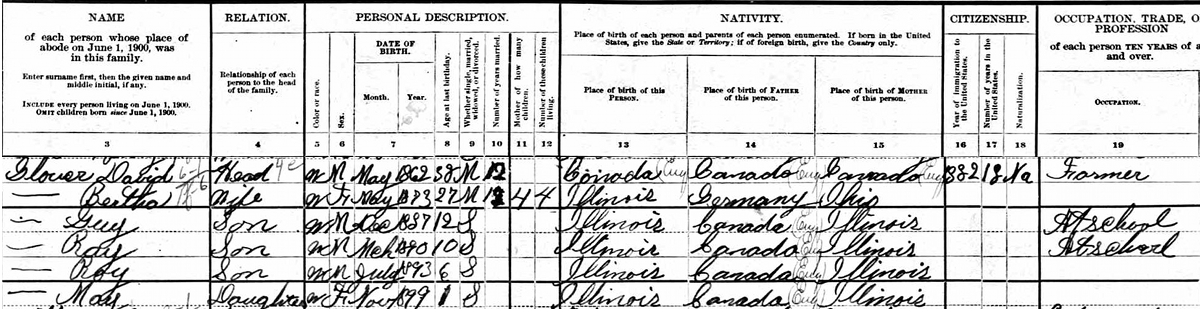 NAME
of each person whose place of
abode on June 1, 1900, was
in this family.
Enter surname first, then the given name and
middle initial, if any.
INCLUDE every person living on June 1, 1900.
OMIT children born since June 1, 1900.
3
RELATION.
Relationship of each
person to the head
of the family.
4
PERSONAL DESCRIPTION.
Color or race.
5
Sex.
6
DATE OF
BIRTH.
Month. Year.
7
Age at last birthday.
8
Whether single, married,
widowed, or divorced.
9
Number of years married.
10
Mother of how many
children.
11
Number of these children
living.
12
NATIVITY.
Place of birth of each person and parents of each person enumerated. If born in the United
States, give the State or Territory; if of foreign birth, give the Country only.
Place of birth of this
PERSON.
13
Place of birth of FATHER
of this person.
14
Place of birth of MOTHER
of this person.
15
CITIZENSHIP.
Year of immigration to
the United States.
16
Number of years in the
United States.
17
Naturalization.
18
OCCUPATION, TRADE, O
PROFESSION
of each person TEN YEARS of a
and over.
OCCUPATION.
19
Glover David Head W M May 1862 38 M 12 Canada Eng Canada Eng Canada Eng 1882 18 Na Farmer
— Bertha Wife W F May 1873 27 M 12 4 4 Illinois Germany Ohio
— Guy Son W M Dec 1887 12 S Illinois Canada Eng Illinois At school
— Ray Son W M Mch 1890 10 S Illinois Canada Eng Illinois At school
— Roy Son W M July 1893 6 S Illinois Canada Eng Illinois
— May Daughter W F Nov 1899 1 S Illinois Canada Eng Illinois